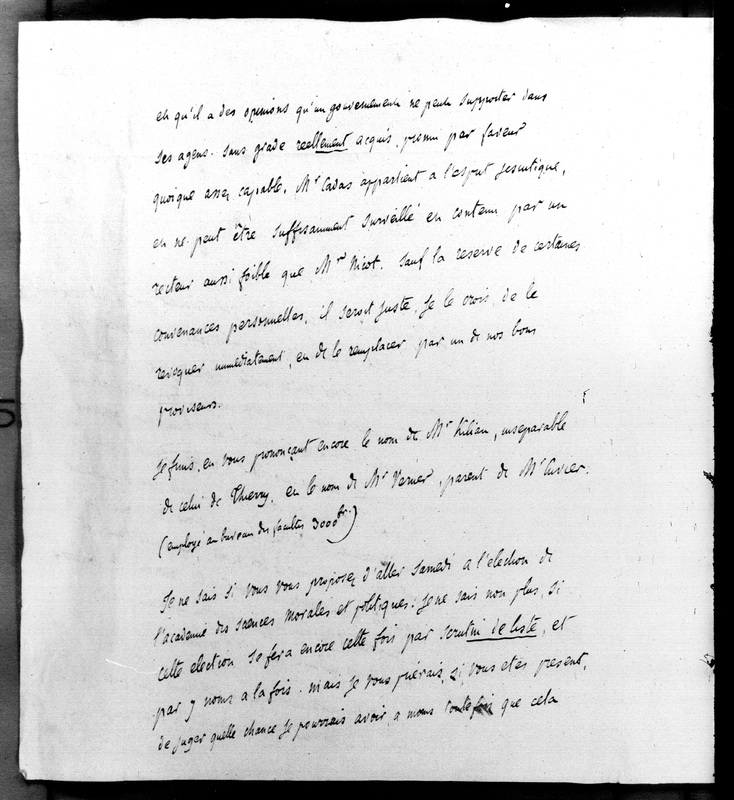 et qu'il a des opinions qu'un gouvernement ne peut supporter dans
ses agens. sans grade reellement acquis, promu par faveur
quoique assez capable, Mr Cavas appartient a l'esprit jesuitique,
et ne peut être suffisamment surveillé et contenu par un
recteur aussi foible que Mr Nicot. Sauf la reserve de certaines
convenances personnelles, il seroit juste, je le crois, de le
revoquer immédiatement, et de le remplacer par un de nos bons
proviseurs.
Je finis, en vous prononçant encore le nom de Mr Kilian, inseparable
de celui de Thierry, et le nom de Mr Verner, parent de Mr Cuvier.
(employé au bureau des facultés 3000 fr.)
Je ne sais si vous vous proposez d'aller samedi a l'election de
l'academie des sciences morales et politiques. Je ne sais non plus, si
cette election se fera encore cette fois par scrutin de liste, et
par y noms a la fois. mais je vous prierais, si vous etes present,
de juger quelle chance je pourrais avoir, a moins toutefois que cela